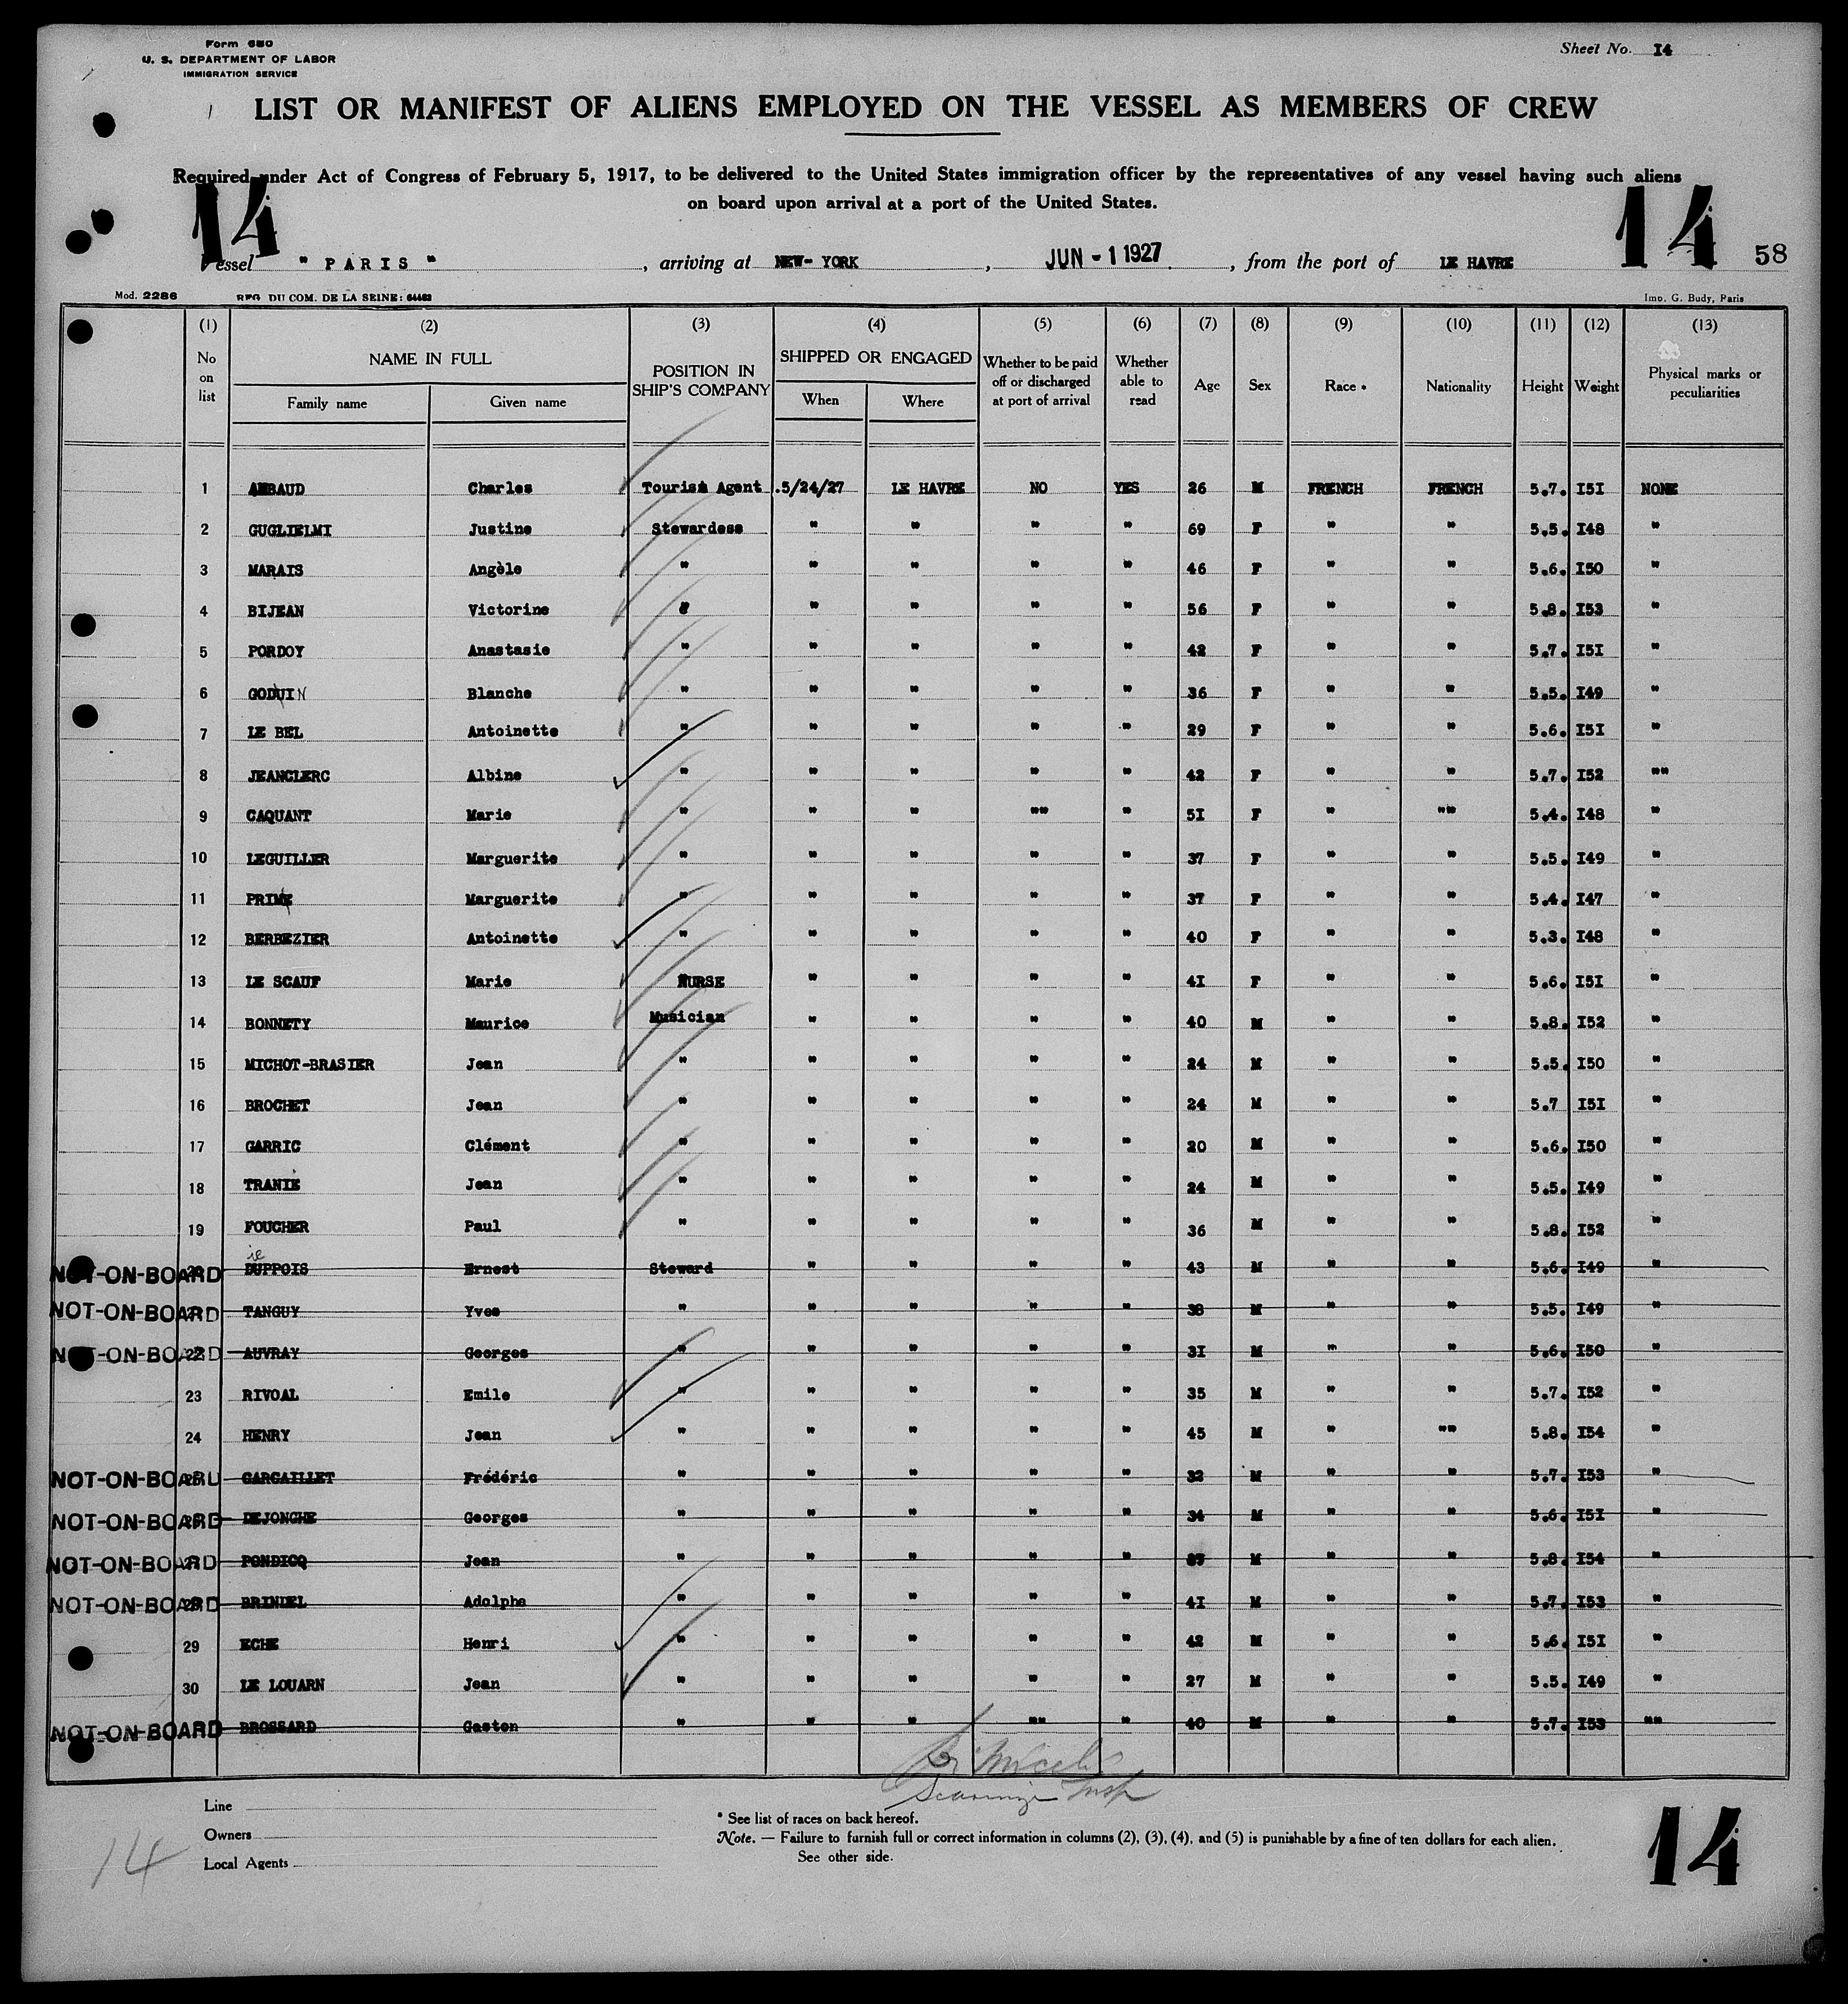 Form 680
U. S. DEPARTMENT OF LABOR
IMMIGRATION SERVICE
Sheet No. I4
LIST OR MANIFEST OF ALIENS EMPLOYED ON THE VESSEL AS MEMBERS OF CREW
Required under Act of Congress of February 5, 1917, to be delivered to the United States immigration officer by the representatives of any vessel having such aliens
on board upon arrival at a port of the United States.
14 14 58
Vessel " PARIS " , arriving at NEW-YORK , JUN - 1 1927 , from the port of LE HAVRE
Mod. 2286 REG. DU COM. DE LA SEINE: 64462 Imp. G. Budy, Paris
(1) (2) (3) (4) (5) (6) (7) (8) (9) (10) (11) (12) (13)
No on list NAME IN FULL Family name Given name POSITION IN SHIP'S COMPANY SHIPPED OR ENGAGED When Where Whether to be paid off or discharged at port of arrival Whether able to read Age Sex Race * Nationality Height Weight Physical marks or peculiarities
1 AMBAUD Charles Tourist Agent .5/24/27 LE HAVRE NO YES 26 M FRENCH FRENCH 5.7. I5I NONE
2 GUGLIELMI Justine Stewardess " " " " 69 F " " 5.5. I48 "
3 MARAIS Angèle " " " " " 46 F " " 5.6. I50 "
4 BIJEAN Victorine " " " " " 56 F " " 5.8. I53 "
5 PORDOY Anastasie " " " " " 42 F " " 5.7. I5I "
6 GODUIN Blanche " " " " " 36 F " " 5.5. I49 "
7 LE BEL Antoinette " " " " " 29 F " " 5.6. I5I "
8 JEANCLERC Albine " " " " " 42 F " " 5.7. I52 ""
9 CAQUANT Marie " " " "" " 5I F " "" 5.4. I48 "
10 LEGUILLER Marguerite " " " " " 37 F " " 5.5. I49 "
11 PRIME Marguerite " " " " " 37 F " " 5.4. I47 "
12 BERBEZIER Antoinette " " " " " 40 F " " 5.3. I48 "
13 LE SCAUF Marie NURSE " " " " 4I F " " 5.6. I5I "
14 BONNETY Maurice Musician " " " " 40 M " " 5.8. I52 "
15 MICHOT-BRASIER Jean " " " " " 24 M " " 5.5. I50 "
16 BROCHET Jean " " " " " 24 M " " 5.7 I5I "
17 GARRIC Clément " " " " " 20 M " " 5.6. I50 "
18 TRANIE Jean " " " " " 24 M " " 5.5. I49 "
19 FOUCHER Paul " " " " " 36 M " " 5.8. I52 "
ie
NOT-ON-BOARD 20 DUPPOIS Ernest Steward " " " " 43 M " " 5.6. I49 "
NOT-ON-BOARD TANGUY Yves " " " " " 38 M " " 5.5. I49 "
NOT-ON-BOARD 22 AUVRAY Georges " " " " " 3I M " " 5.6. I50 "
23 RIVOAL Emile " " " " " 35 M " " 5.7. I52 "
24 HENRY Jean " " " " " 45 M " "" 5.8. I54 "
NOT-ON-BOARD GARCAILLET Frédéric " " " " " 32 M " " 5.7. I53 "
NOT-ON-BOARD DEJONGHE Georges " " " " " 34 M " " 5.6. I5I "
NOT-ON-BOARD PONDICQ Jean " " " " " M " " 5.8. I54 "
NOT-ON-BOARD BRINDEL Adolphe " " " " " 4I M " " 5.7. I53 "
29 ECHE Henri " " " " " 42 M " " 5.6. I5I "
30 LE LOUARN Jean " " " " " 27 M " " 5.5. I49 "
NOT-ON-BOARD BROSSARD Gaston " " " "" " 40 M " " 5.7. I53 ""
Insp
Line
Owners
Local Agents
* See list of races on back hereof.
Note. — Failure to furnish full or correct information in columns (2), (3), (4), and (5) is punishable by a fine of ten dollars for each alien.
See other side.
14
14